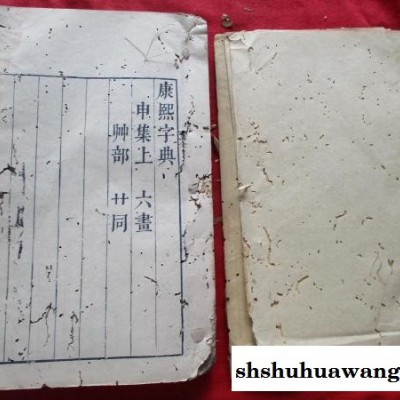 康熙字典
申集上 六畫
艸部 廾同
shshuhuawang